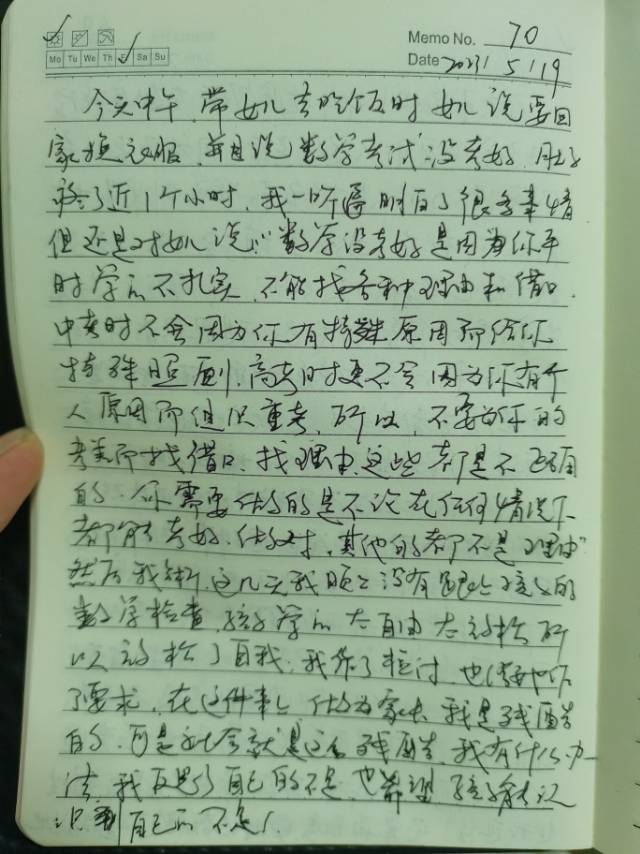 Memo No. 70
Mo Tu We Th Fr Sa Su
Date 2023/5/19
今天中午,带如儿去吃饭时如儿说要回
家换衣服,并且说数学考试没考好,肚子
疼了近1个小时,我一听 明白了很多事情
但还是对如儿说:"数学没考好是因为你平
时学的不扎实,不能找各种理由和借口,
中考时不会因为你有特殊原因而给你
特殊照顾,高考时更不会因为你有个
人原因而组织重考,所以,不要为你的
考差而找借口,找理由,这些都是不 用
的,你需要做的是不论在任何情况下
都能考好,做对,其他的都不是理由"
然后我 ,这几天我晚上没有跟上孩子的
数学检查,孩子学的太自由太放松所
以放松了自我,我做了检讨,也 她作
了要求,在这件事上做为家长我是残酷
的,可是社会就是这么残酷,我有什么办
法,我反思了自己的不是,也希望孩子能认
识到自己的不足!